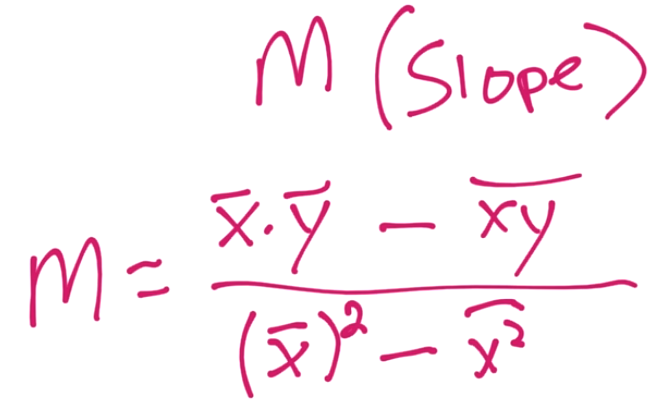 M (Slope)
M = x̅·y̅ - x̅y̅ / (x̅)² - x̅²̅